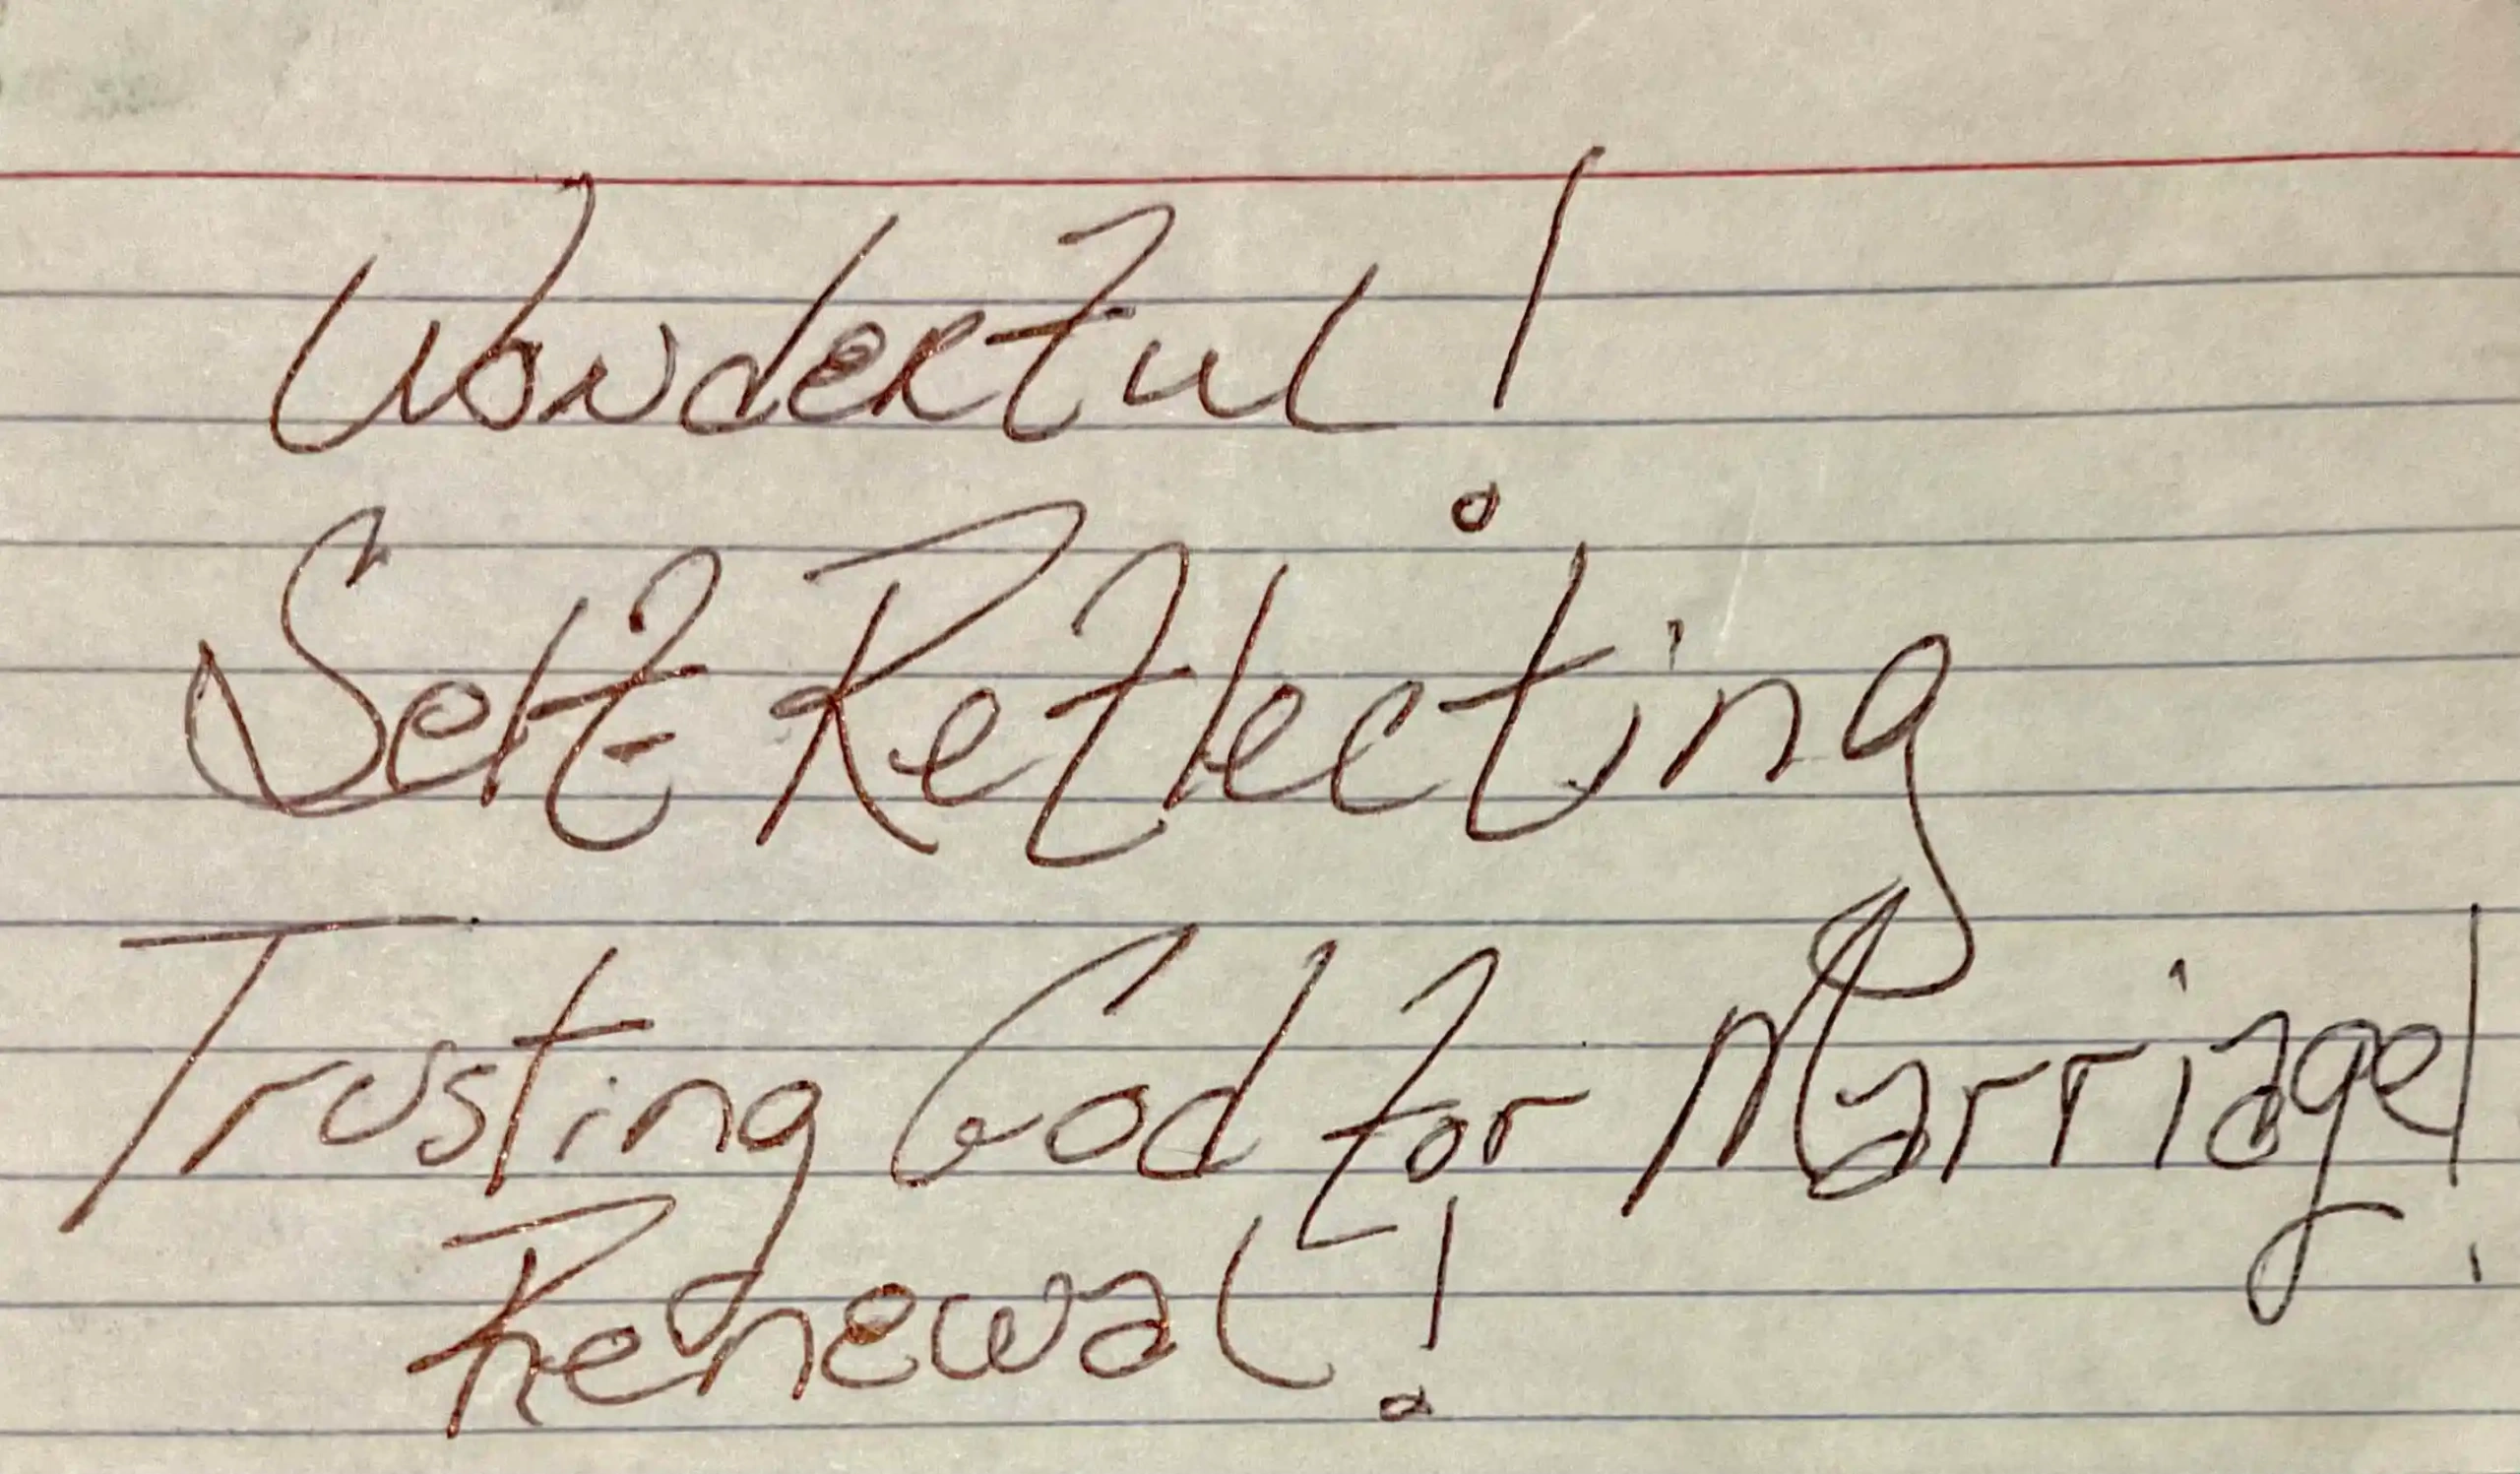 Wonderful!
Self Reflecting
Trusting God for Marriage!
Renewal!